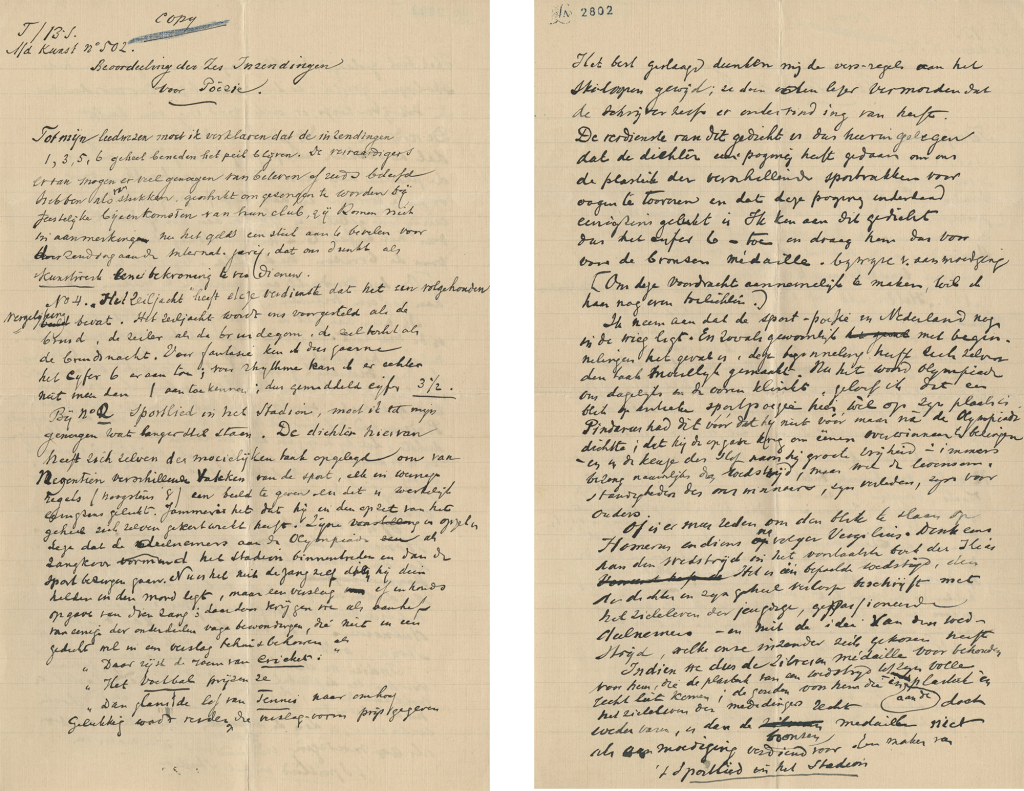 Copy
T/B.S.
A/d Kunst No 502.
Beoordeeling der Zes Inzendingen
voor Poëzie.
Tot mijn leedwezen moet ik verklaren dat de inzendingen
1, 3, 5, 6 geheel beneden het peil blijven. De vervaardigers
ervan mogen er veel genoegen van beleven of reeds beleefd
hebben als van stukken, geschikt om gezongen te worden bij
feestelijke bijeenkomsten van hun club, zij komen niet
in aanmerking nu het geldt een stuk aan te bevelen voor
inzending aan de Internat. jury, dat ons dunkt als
kunstwerk eene bekroning te verdienen.
No 4. "Het Zeiljacht" heeft deze verdienste dat het een volgehouden
vergelijking bevat. Het zeiljacht wordt ons voorgesteld als de
bruid, de zeiler als de bruidegom, de zeiltocht als
de bruidsnacht. Voor fantasie ken ik dus gaarne
het cijfer 6 er aan toe; voor rhythme kan ik er echter
niet meer dan 1 aan toekennen; dus gemiddeld cijfer 3 1/2.
Bij no 2 Sportlied in het Stadion, moet ik tot mijn
genoegen wat langer stil staan. De dichter hiervan
heeft zich zelven de moeielijken taak opgelegd om van
Negentien verschillende takken van de sport, elk in weinige
regels (hoogstens 8) een beeld te geven en dit is werkelijk
eenigzins gelukt. Jammer is het dat hij in den opzet van het
geheel zich zelven gekortwiekt heeft. Zijne in opzet is
deze dat de deelnemers aan de Olympiade als
zangkoor vormend het stadion binnentreden en dan de
sport bezingen gaan. Nu is het niet de zang zelf dien hij dien
helden in den mond legt, maar een verslag of inhouds
opgave van dien zang; daardoor krijgen we als aanhef
van eenige der onderdeelen vage bewoordingen, die niet in een
gedicht wel in een verslag behuis behooren als
" Daar rijst de roem van Cricket: "
" Het Voetbal prijzen ze
" Dan glanst de lof van Tennis naar omhoog
Gelukkig wordt verder die verslag-vorm prijsgegeven
2802
Het best geslaagd dunken mij de vers-regels aan het
Skiloopen gewijd; ze doen den lezer vermoeden dat
de schrijver heeft er ondervinding van heeft.
De verdienste van dit gedicht is dus hierin gelegen
dat de dichter een poging heeft gedaan om ons
de plastiek der verschillende sporttakken voor
oogen te tooveren en dat deze poging inderdaad
eenigzins gelukt is. Ik ken aan dit gedicht
dus het cijfer 6 toe en draag hem dus voor
voor de bronzen médaille. bij wijze v. aanmoediging
(Om deze voordracht aannemelijk te maken, wil ik
haar nog even toelichten.)
Ik neem aan dat de sport-poëzie in Nederland nog
in de wieg ligt. En zooals gewoonlijk met begin-
nelingen het geval is, deze beginneling heeft zich zelven
den taak moeilijk gemaakt. Nu het woord Olympiade
ons dagelijks in de ooren klinkt, geloof ik dat een
blik op antieke sportpoëzie hier wel op zijn plaats is.
Pindarus had dit vóór dat hij niet voor maar ná de Olympiade
dichtte; dat hij de opgave kreeg om éénen overwinnaar te bezingen
- en in de keuze der stof nam hij groote vrijheid - immers
bezong nauwelijks den wedstrijd, maar wel de levensom-
standigheden des overwinnaars, zijn verleden, zijn voor
ouders.
Of is er meer reden om den blik te slaan op
Homerus en diens navolger Vergilius. Denk eens
aan den wedstrijd in het voorlaatste boek der Ilias
Het is één bepaalde wedstrijd, dien
de dichter in zijn geheel verloop beschrijft met
het zieleleven der jeugdige, gepassioneerde
deelnemers - en niet de idee van den wed-
strijd, welke onze inzender zich gekozen heeft
Indien we dus de Zilveren médaille voor behouden
voor hem, die de plastiek van een wedstrijd tot zijn volle
recht laat komen; de gouden voor hem die én plastiek én
het zieleleven der mededingers recht aan de doch
wedervaren, is dan de bronzen medaille niet
als aanmoediging verdiend voor den maker van
't Sportlied in het Stadion